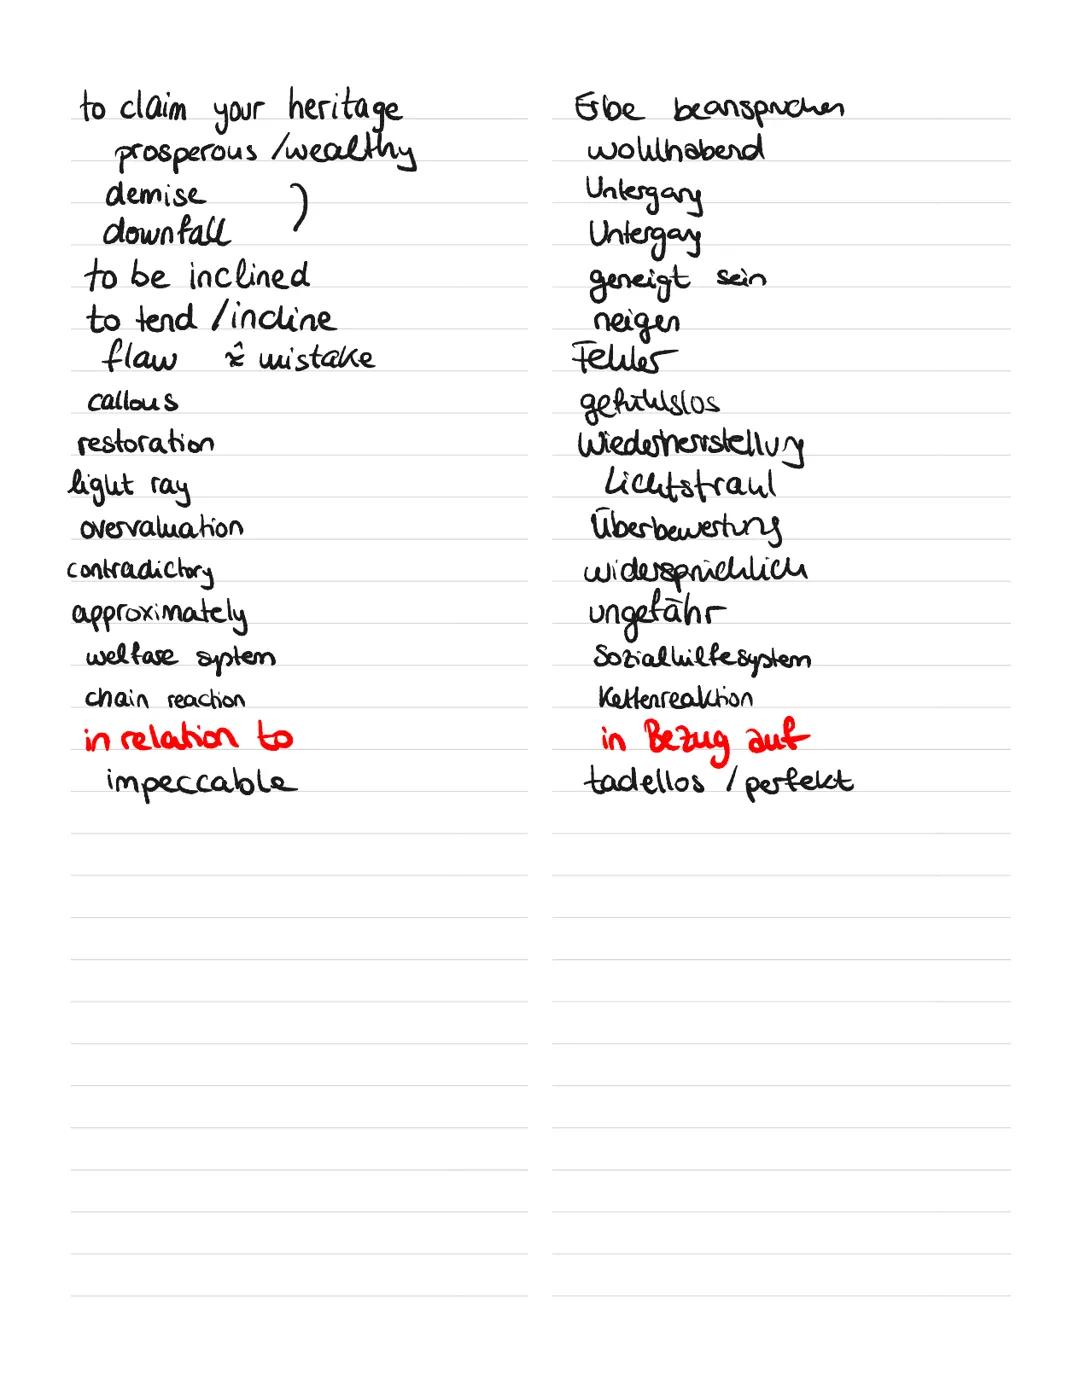 to claim your heritage Erbe beanspruchen
prosperous / wealthy wohlhabend
demise ) Untergang
downfall Untergang
to be inclined geneigt sein
to tend / incline neigen
flaw ≙ mistake Fehler
callous gefühlslos
restoration Wiederherrstellung
light ray Lichtstrahl
overvaluation Überbewertung
contradictory widersprüchlich
approximately ungefähr
welfare system Sozialhilfesystem
chain reaction Kettenreaktion
in relation to in Bezug auf
impeccable tadellos / perfekt